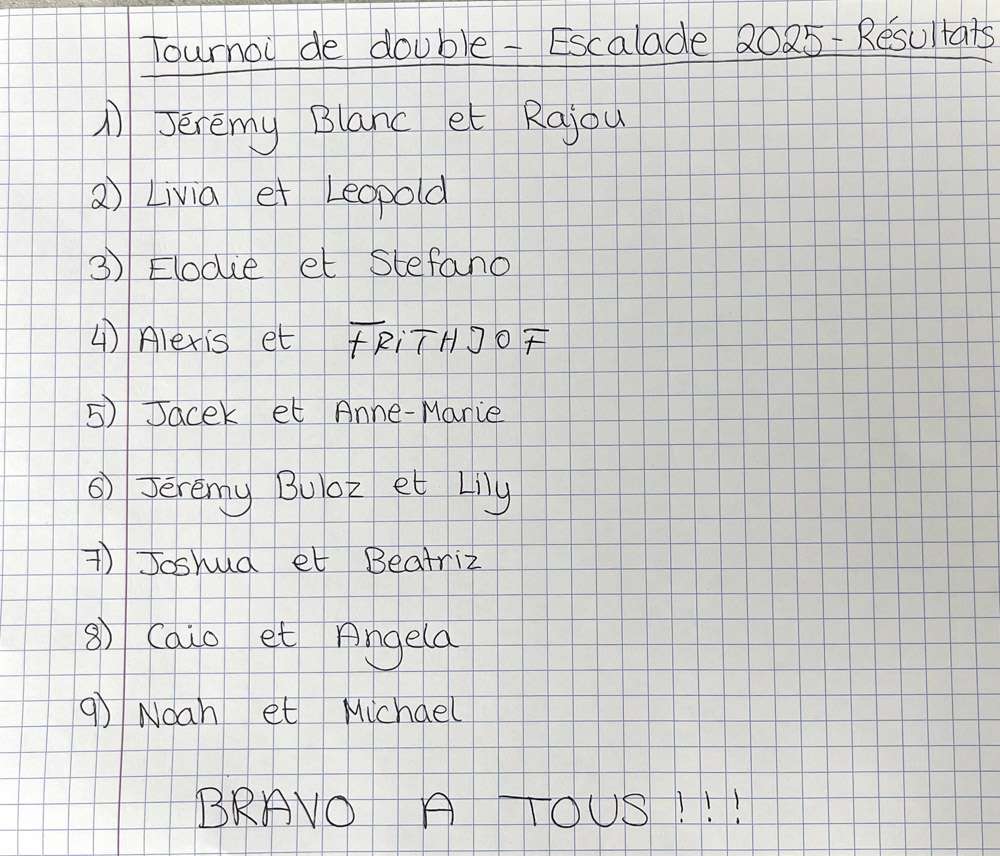 Tournoi de double - Escalade 2025 - Résultats
1) Jérémy Blanc et Rajou
2) Livia et Leopold
3) Elodie et Stefano
4) Alexis et FRiTHJOF
5) Jacek et Anne-Marie
6) Jérémy Buloz et Lily
7) Joshua et Beatriz
8) Caio et Angela
9) Noah et Michael
BRAVO A TOUS !!!